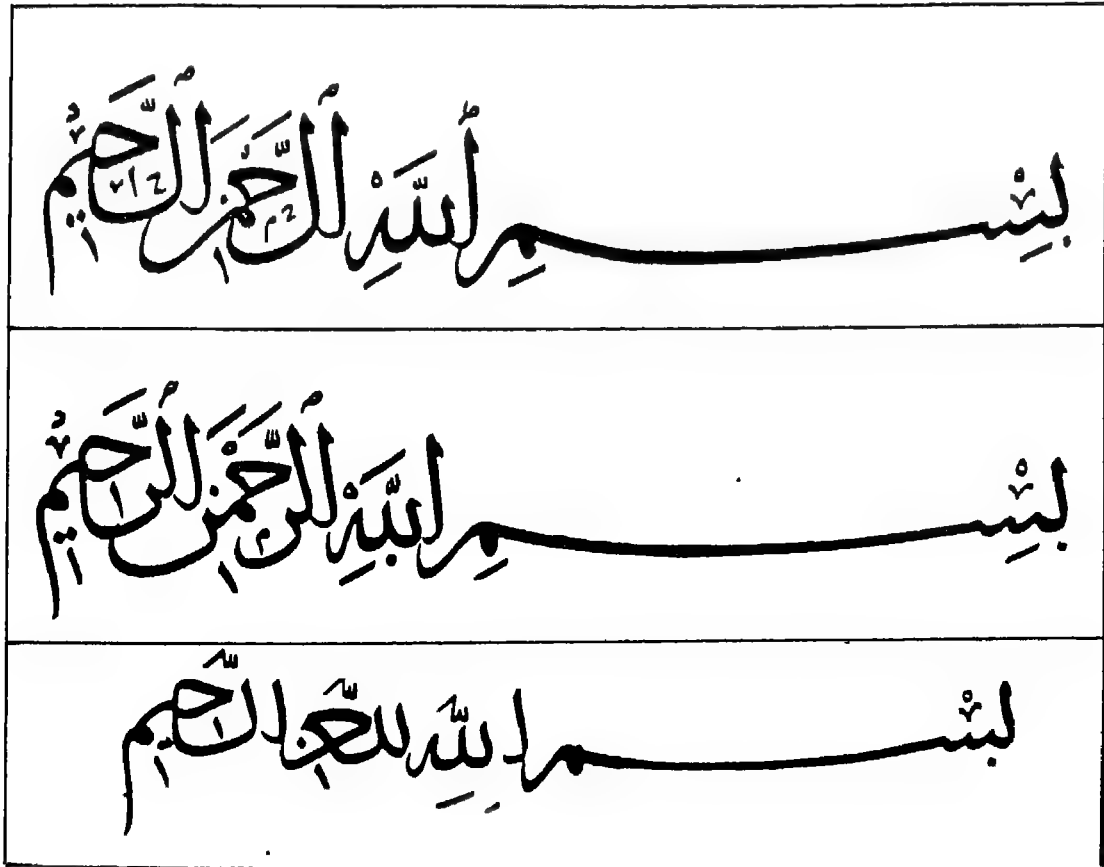 بِسْمِ ٱللَّهِ ٱلرَّحْمَٰنِ ٱلرَّحِيمِ
بِسْمِ اللَّهِ ٱلرَّحْمَٰنِ ٱلرَّحِيمِ
بسْم اللّٰه الرحمن الرحيم